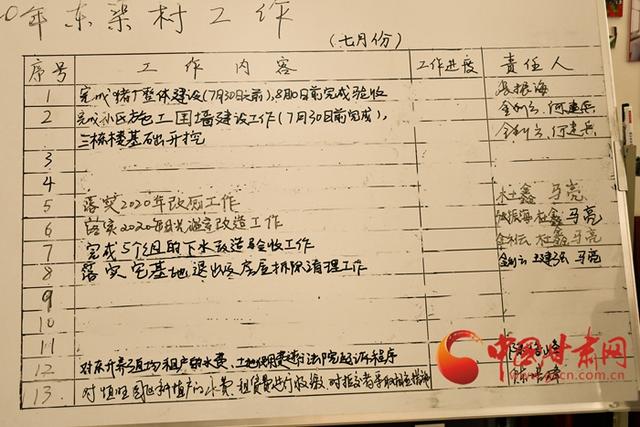 0年东梁村工作
(七月份)
序号 工作内容 工作进度 责任人
1 完成猪厂整体建设(7月30日之前),8月10日前完成验收 振海
2 完成社区 工 围墙建设工作(7月30日前完成), 金利云、何建兵
三栋楼基础开挖 金利云、何建兵
3
4
5 落实2020年改厕工作 杜鑫 马亮
6 落实2020年阳光温室改造工作 振海 杜鑫 马亮
7 完成5个组的下水改造验收工作 金利云 杜鑫 马亮
8 落实宅基地退出后房屋拆除清理工作 金利云 马亮
9
10
11
12 对 养殖 租户的水费、土地使用费进行法院起诉程序 陈
13 对 种植户的水费、租赁费进行收缴,对拒交者采取相应措施 陈
中国甘肃网
.com.cn